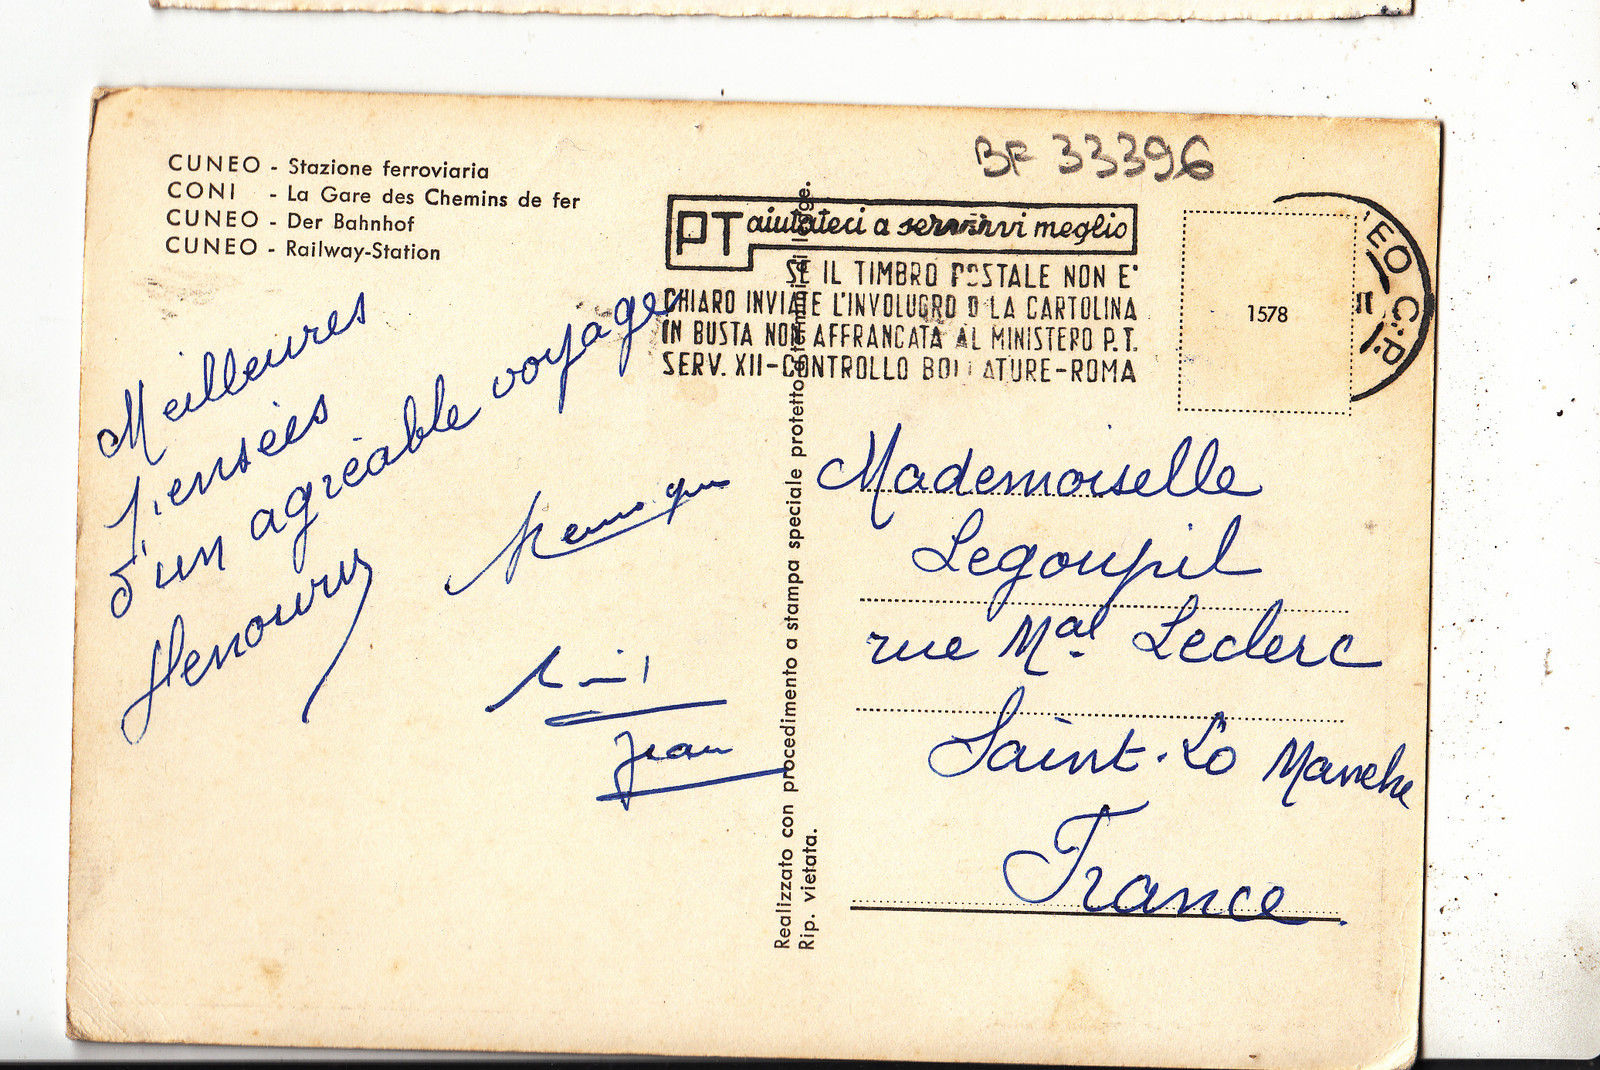 CUNEO - Stazione ferroviaria
CONI - La Gare des Chemins de fer
CUNEO - Der Bahnhof
CUNEO - Railway-Station
BF 33396
PT aiutateci a servirvi meglio
SE IL TIMBRO POSTALE NON E'
CHIARO INVIATE L'INVOLUCRO O LA CARTOLINA
IN BUSTA NON AFFRANCATA AL MINISTERO P.T.
SERV. XII-CONTROLLO BOLLATURE-ROMA
EO C.P.
1578
Meilleures
Pensées
d'un agréable voyage
Jean
Realizzato con procedimento a stampa speciale protetto a termini di legge.
Rip. vietata.
Mademoiselle
Legoupil
rue Mal Leclerc
Saint-Lô Manche
France.